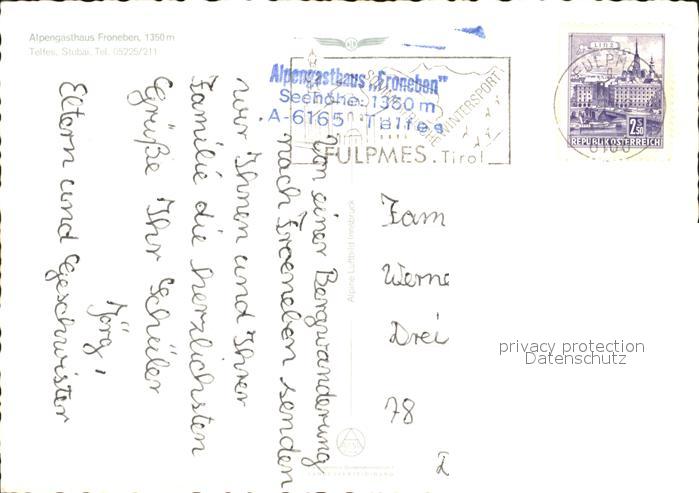 Alpengasthaus Froneben, 1350 m
Telfes, Stubai. Tel. 05225/211
Alpengasthaus "Froneben"
Seehöhe: 1350 m
A-6165 Telfes
WINTERSPORT
FULPMES. Tirol
LINZ
FULPM
2S50
REPUBLIK ÖSTERREICH
Von einer Bergwanderung
nach Froneben senden
wir Ihnen und Ihrer
Familie die herzlichsten
Grüße Ihr Schüler
Jörg,
Eltern und Geschwister
Alpine Luftbild Innsbruck
Fam
Werne
Drei
78
privacy protection
Datenschutz